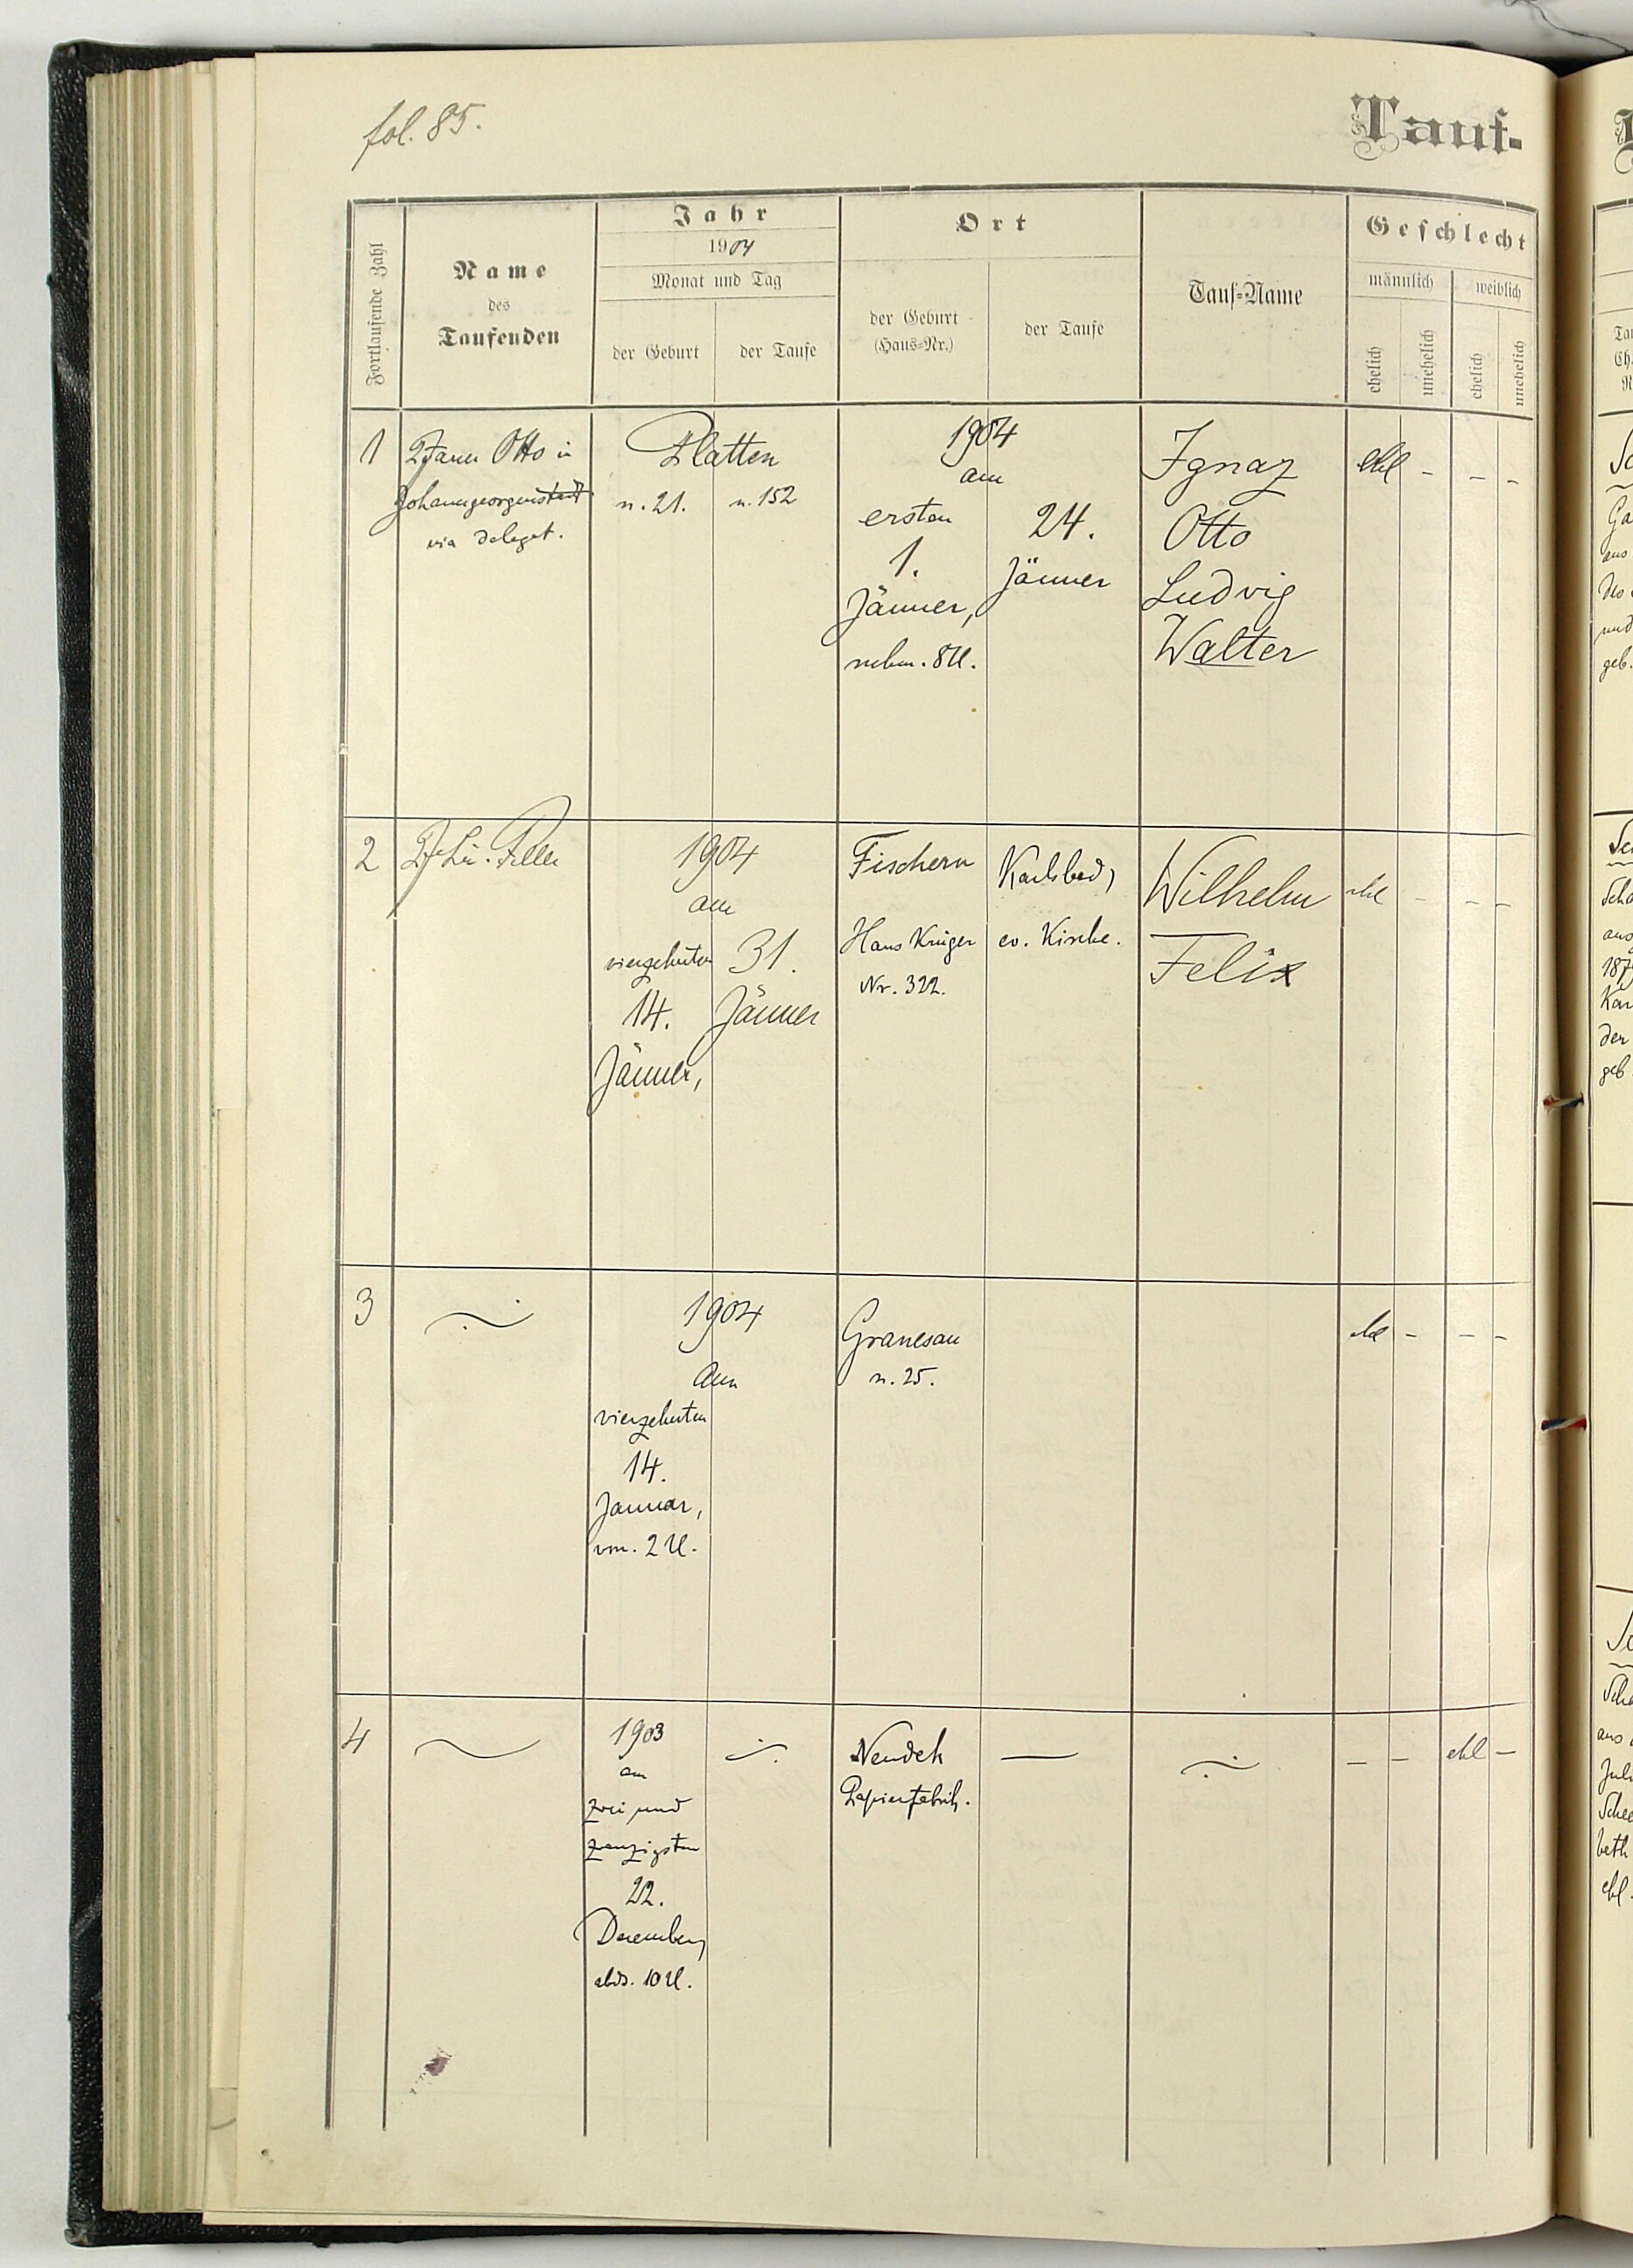 fol. 85.
Tauf-
Fortlaufende Zahl
Name
des
Taufenden
Jahr
1904
Monat und Tag
der Geburt
der Taufe
Ort
der Geburt
(Haus-Nr.)
der Taufe
Tauf-Name
Geschlecht
männlich
weiblich
ehelich
unehelich
ehelich
unehelich
1
Pfarrer Otto in
Johanngeorgenstadt
via deleget.
Platten
n. 21.
n. 152
1904
am
ersten
1.
Jänner,
nchm. 8 U.
24.
Jänner
Ignaz
Otto
Ludvig
Walter
ehl - - -
2
1904
am
vierzehnten
14.
Jänner,
31.
Jänner
Fischern
Haus Krüger
Nr. 322.
Karlsbad,
ev. Kirche.
Wilhelm
Felix
ehl - - -
3
1904
Am
vierzehnten
14.
Januar,
vm. 2 U.
Granesau
n. 25.
ehl - - -
4
1903
am
zwei und
zwanzigsten
22.
Dezember,
abds. 10 U.
Neudek
Papierfabrik.
- - ehl -